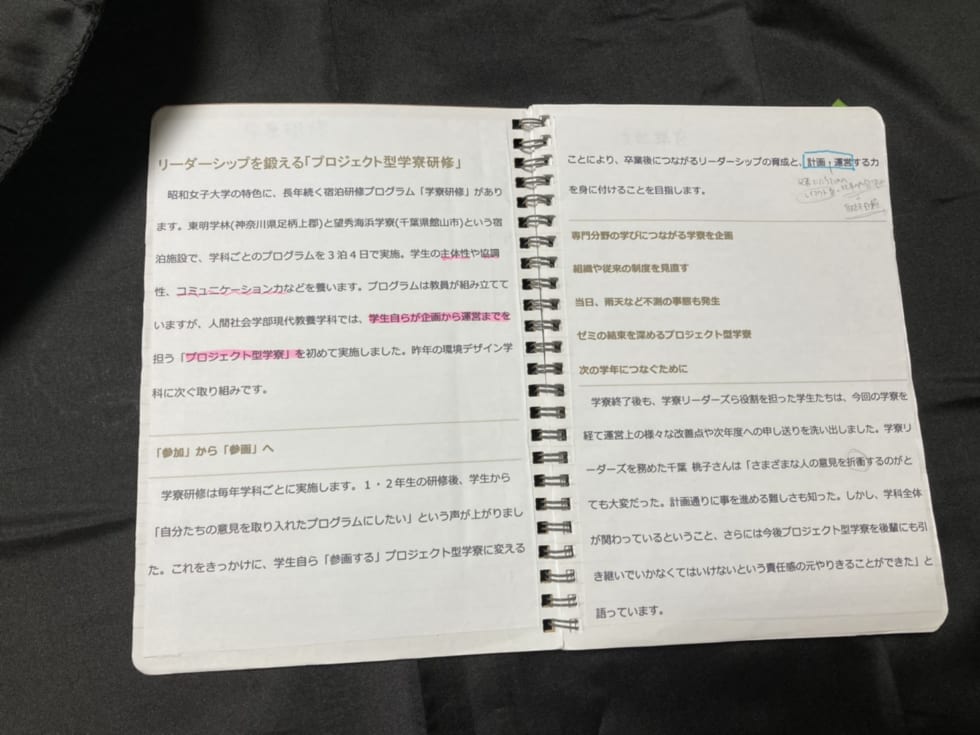 リーダーシップを鍛える「プロジェクト型学寮研修」
昭和女子大学の特色に、長年続く宿泊研修プログラム「学寮研修」があり
ます。東明学林(神奈川県足柄上郡)と望秀海浜学寮(千葉県館山市)という宿
泊施設で、学科ごとのプログラムを３泊４日で実施。学生の主体性や協調
性、コミュニケーション力などを養います。プログラムは教員が組み立てて
いますが、人間社会学部現代教養学科では、学生自らが企画から運営までを
担う「プロジェクト型学寮」を初めて実施しました。昨年の環境デザイン学
科に次ぐ取り組みです。
「参加」から「参画」へ
学寮研修は毎年学科ごとに実施します。１・２年生の研修後、学生から
「自分たちの意見を取り入れたプログラムにしたい」という声が上がりまし
た。これをきっかけに、学生自ら「参画する」プロジェクト型学寮に変える
ことにより、卒業後につながるリーダーシップの育成と、計画・運営する力
を身に付けることを目指します。
専門分野の学びにつながる学寮を企画
組織や従来の制度を見直す
当日、雨天など不測の事態も発生
ゼミの結束を深めるプロジェクト型学寮
次の学年につなぐために
学寮終了後も、学寮リーダーズら役割を担った学生たちは、今回の学寮を
経て運営上の様々な改善点や次年度への申し送りを洗い出しました。学寮リ
ーダーズを務めた千葉 桃子さんは「さまざまな人の意見を折衝するのがと
ても大変だった。計画通りに事を進める難しさも知った。しかし、学科全体
が関わっているということ、さらには今後プロジェクト型学寮を後輩にも引
き継いでいかなくてはいけないという責任感の元やりきることができた」と
語っています。